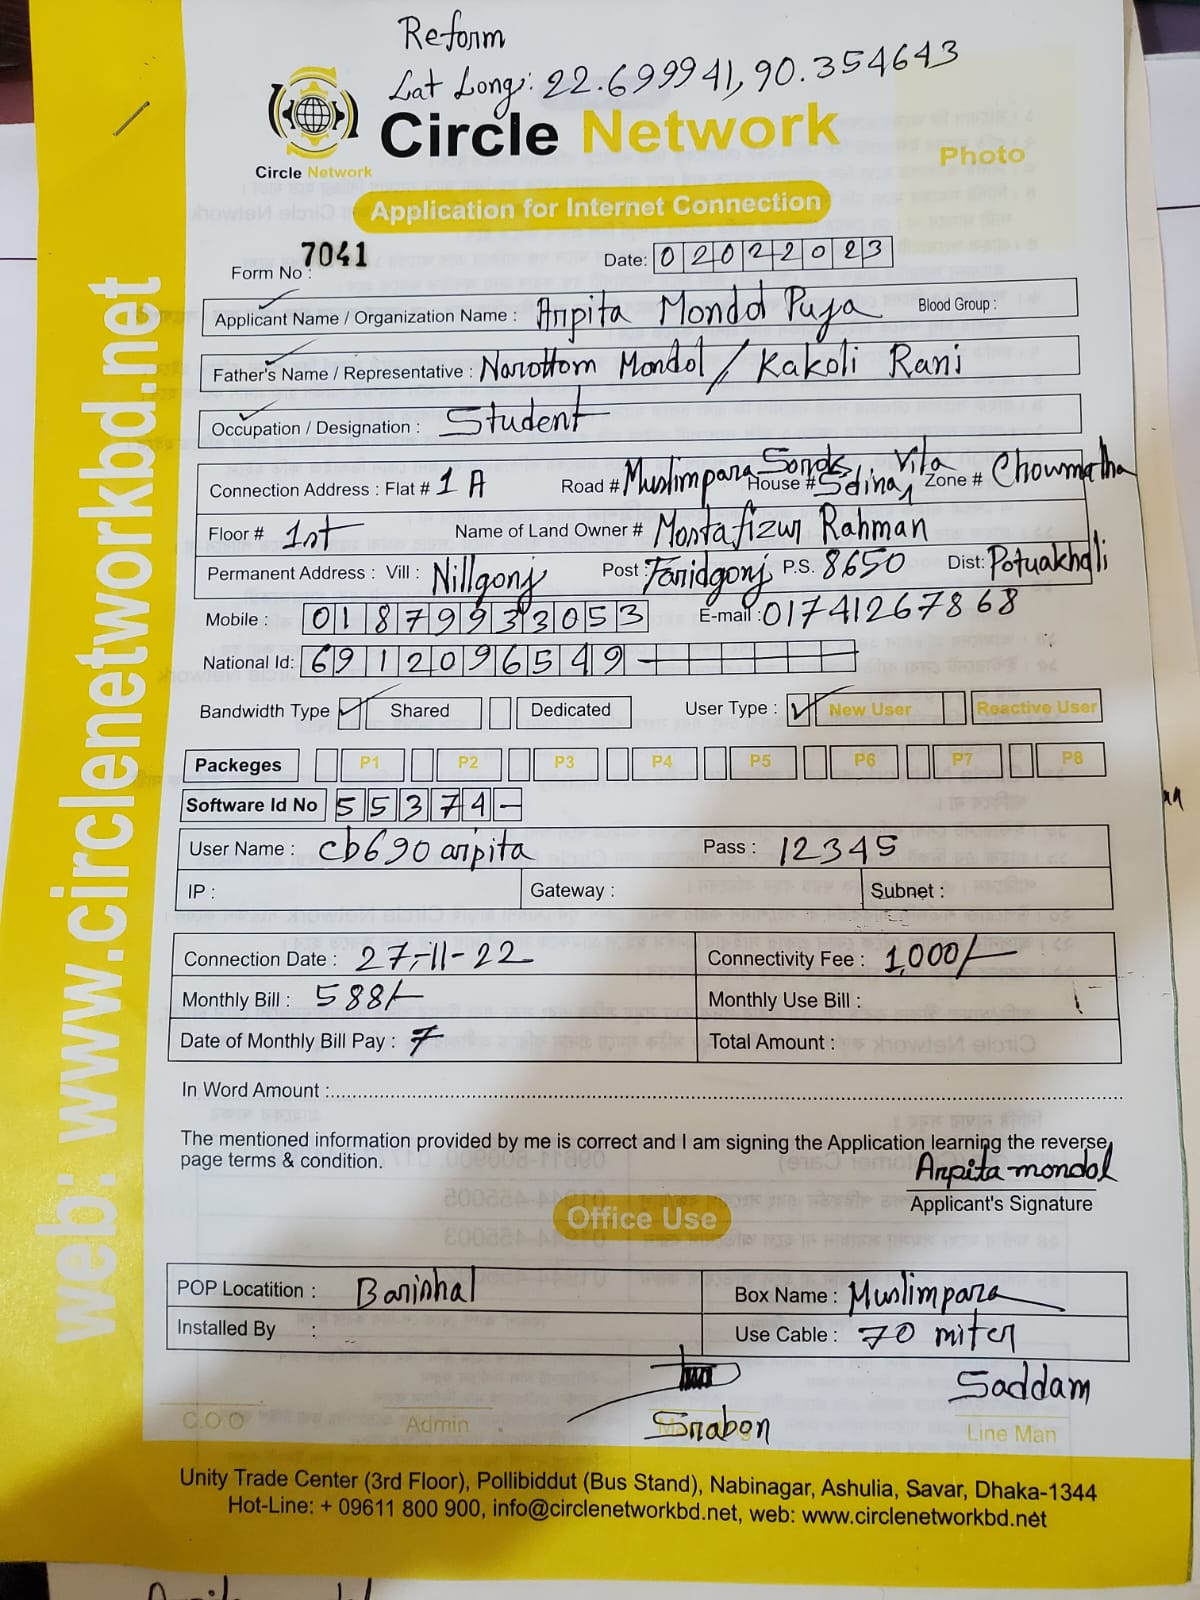 Reform
Lat Long: 22.699941, 90.354643
Circle Network
Circle Network
Photo
Application for Internet Connection
Form No : 7041
Date: 02022023
Applicant Name / Organization Name : Arpita Mondol Puja Blood Group :
Father's Name / Representative : Narottom Mondol / Kakoli Rani
Occupation / Designation : Student
Connection Address : Flat # 1 A Road # Muslimpara House # Zone # Chowmatha
Floor # 1st Name of Land Owner # Mostafizur Rahman
Permanent Address : Vill : Nillgonj Post : Faridgonj P.S. 8650 Dist: Potuakhali
Mobile : 01879933053 E-mail : 01741267868
National Id: 6912096549
Bandwidth Type Shared Dedicated User Type : New User Reactive User
Packeges P1 P2 P3 P4 P5 P6 P7 P8
Software Id No 55374-
User Name : cb690arpita Pass : 12345
IP : Gateway : Subnet :
Connection Date : 27-11-22 Connectivity Fee : 1,000/-
Monthly Bill : 588/- Monthly Use Bill :
Date of Monthly Bill Pay : 7 Total Amount :
In Word Amount :
The mentioned information provided by me is correct and I am signing the Application learning the reverse
page terms & condition.
Arpita mondol
Applicant's Signature
Office Use
POP Locatition : Barishal Box Name : Muslimpara
Installed By : Use Cable : 70 miter
Srabon Saddam
C.O.O Admin Line Man
Unity Trade Center (3rd Floor), Pollibiddut (Bus Stand), Nabinagar, Ashulia, Savar, Dhaka-1344
Hot-Line: + 09611 800 900, info@circlenetworkbd.net, web: www.circlenetworkbd.net
web: www.circlenetworkbd.net